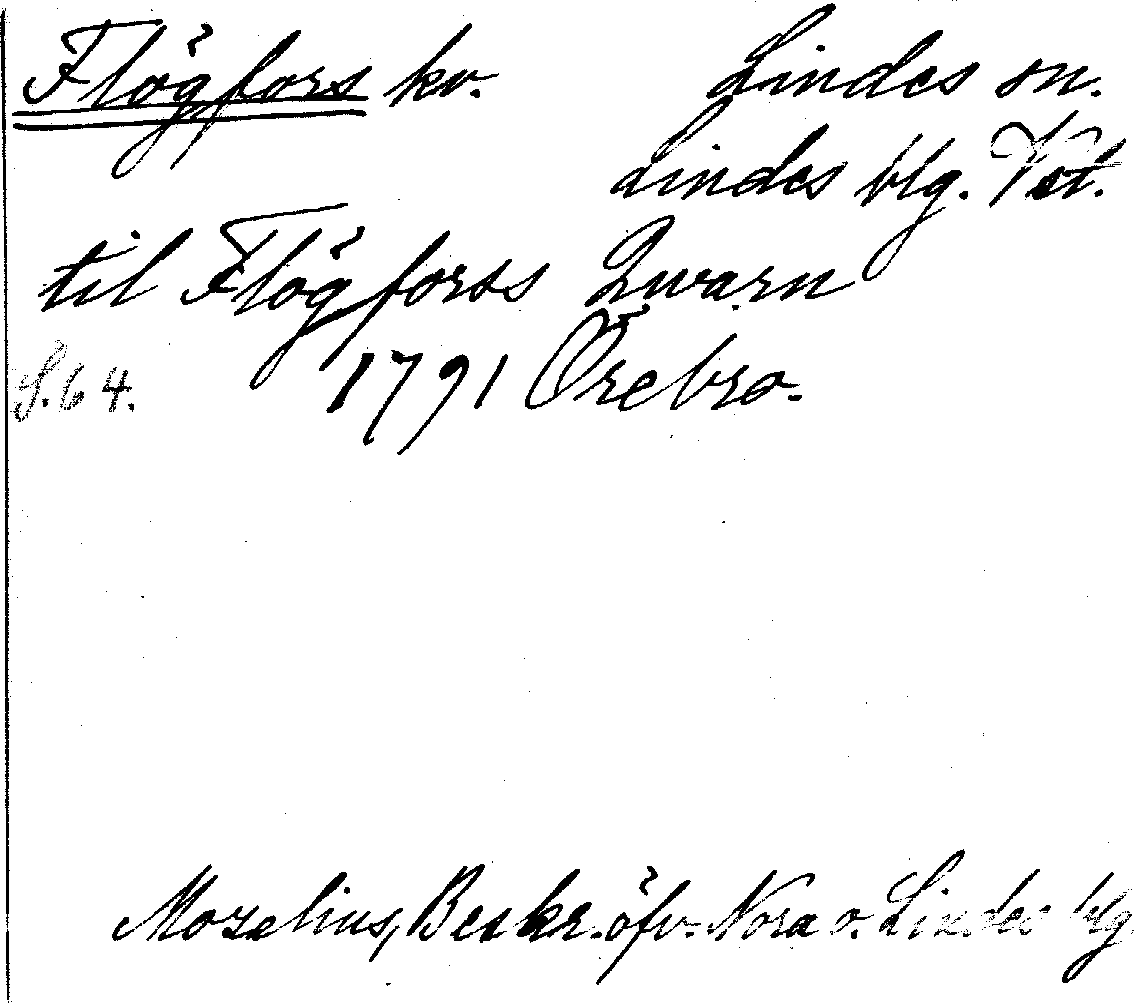 Flögfors kv. Lindes sn.
Lindes blg. Vet.
til Flögforss Qwarn
S. 64. 1791 Örebro.
Mozelius, Beskr. öfv. Nora o. Lindes blg